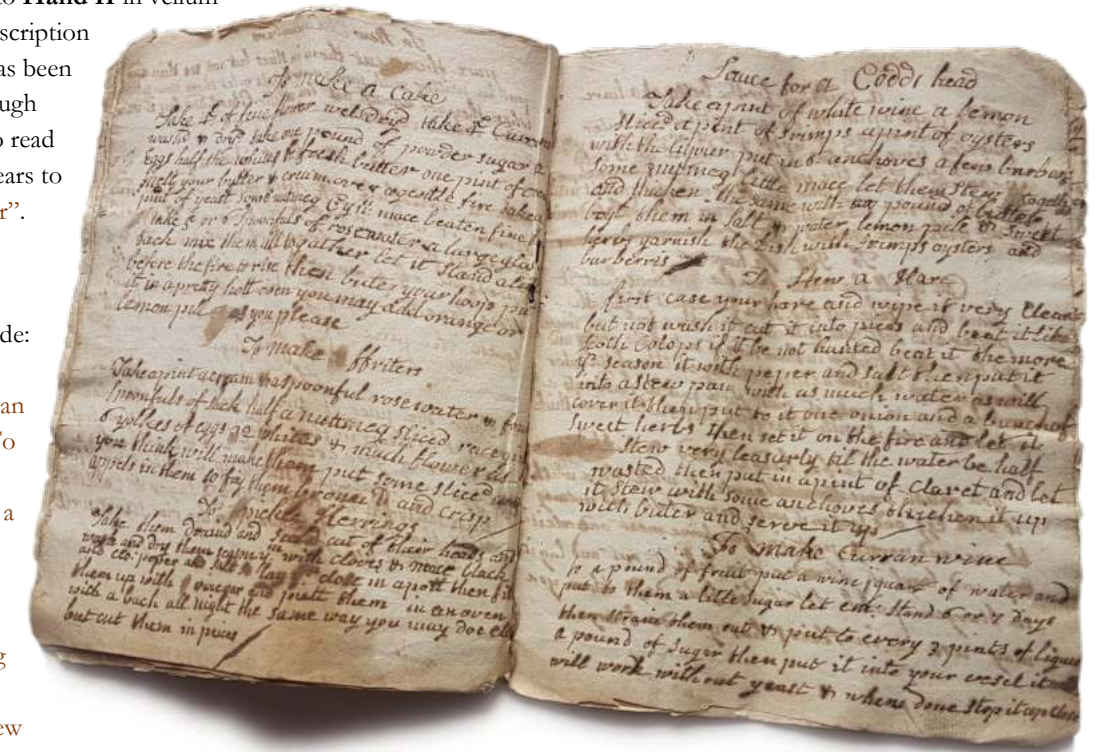 to Hand II in vellum
scription
as been
ugh
o read
ears to
r”.
de:
an
To
a
g
ew
To make a Cake
Take of fine flower wel dryd take Curran
washt & dryd take one pound of powder sugar
Eggs half the whites & fresh butter one pint of
melt your butter & cream over a gentle fire take a
pint of yeast some nutmeg mace beaten fine
take 5 or 6 spoonfuls of rosewater a large glas
sack mix them all togather let it stand a
before the fire to rise then buter your hoop put
it in a prety hott oven you may add orange or
lemon pill as you please
To make ffriters
Take a pint cream spoonful rose water &
spoonfuls of sack half a nuttmeg sliced race
6 yolkes of eggs 2 whites & much flower as
you think will make them put some sliced
appels in them so fry them broune and crisp
To pickle Herrings
Take them and cut of their heads and
wash and dry them season with cloves & mace black
and peper and salt lay close in a pott then
them up with vineger and them in an oven
with a bach all night the same way you may doe
but cut them in pieces
Sauce for a Codds head
Take a pint of white wine a lemon
sliced a pint of srimps a pint of oysters
with the liquer put in 6 anchoves a few
some nutmeg little mace let them stew togather
and thicken the same with pound of
boyl them in salt & water lemon pile & sweet
herbs garnish the dish with srimps oysters and
barberris
To Stew a Hare
first case your hare and wipe it very Clean
but not wash it cut it into pieces and beat it like
Scoth Colops if it be not hunted beat it the more
season it with peper and salt then put it
into a stew pan with as much water as will
cover it then put to it one onion and a bunch of
sweet herbs then set it on the fire and let it
stew very leasurly til the water be half
wasted then put in a pint of Claret and let
it stew with some anchoves thicken it up
with buter and serve it up
To make Curran wine
to a pound of fruit put a wine quart of water and
put to them a litle sugar let em stand 6 or 7 days
then straine them out & put to every 3 pints of lique
a pound of sugar then put it into your vesel it
will work without yeast & when done stop it up close